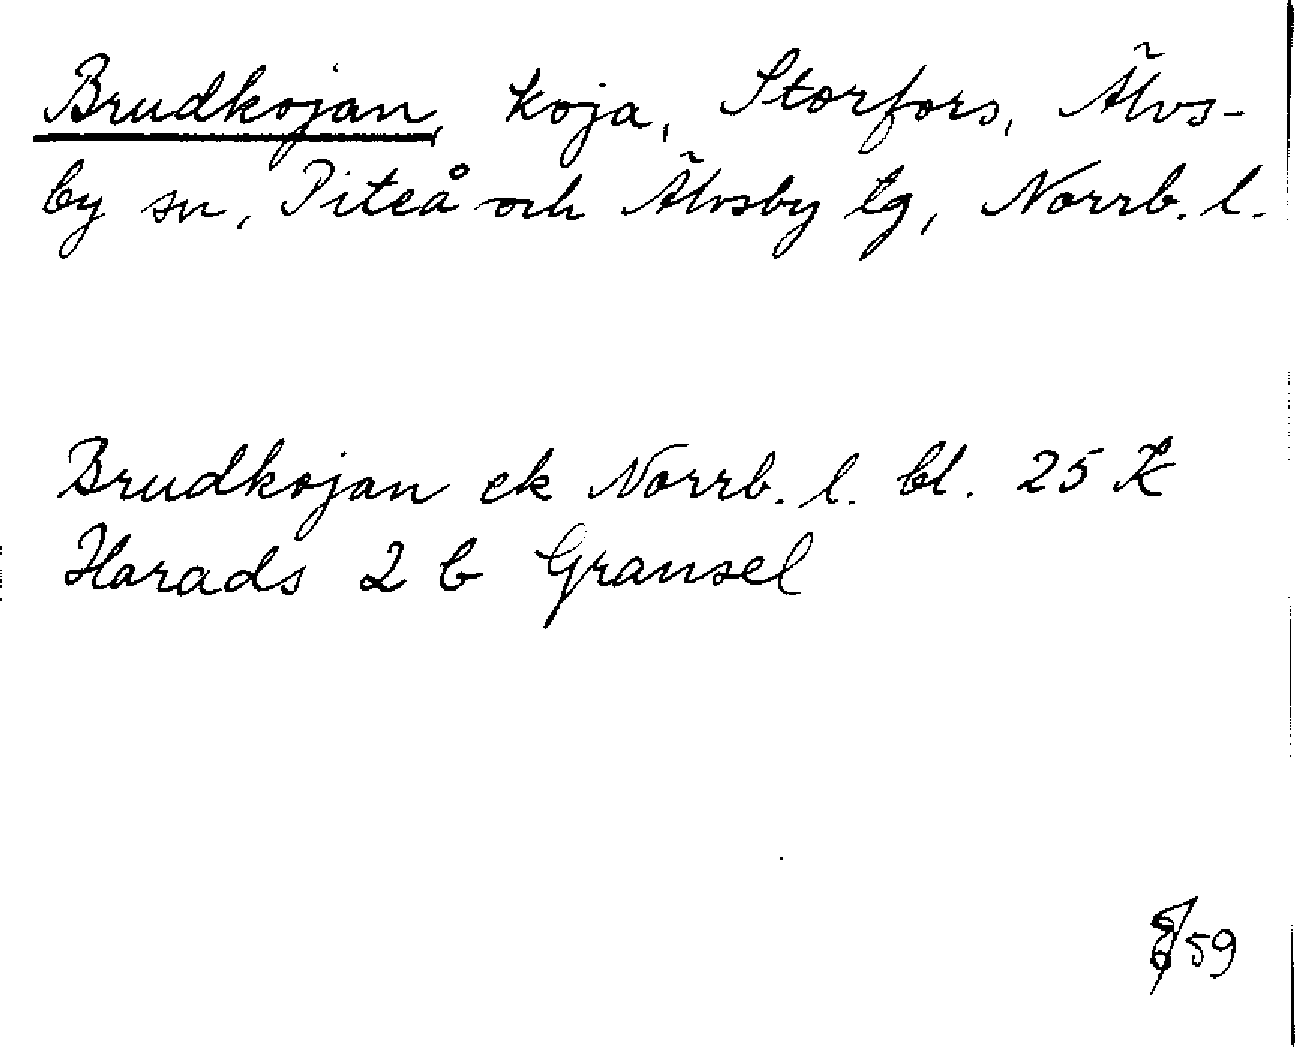 Brudkojan, koja, Storfors, Älvs-
by sn, Piteå och Älvsby tg, Norrb. l.
Brudkojan ek Norrb. l. bl. 25 K
Harads 2 b Gransel
59